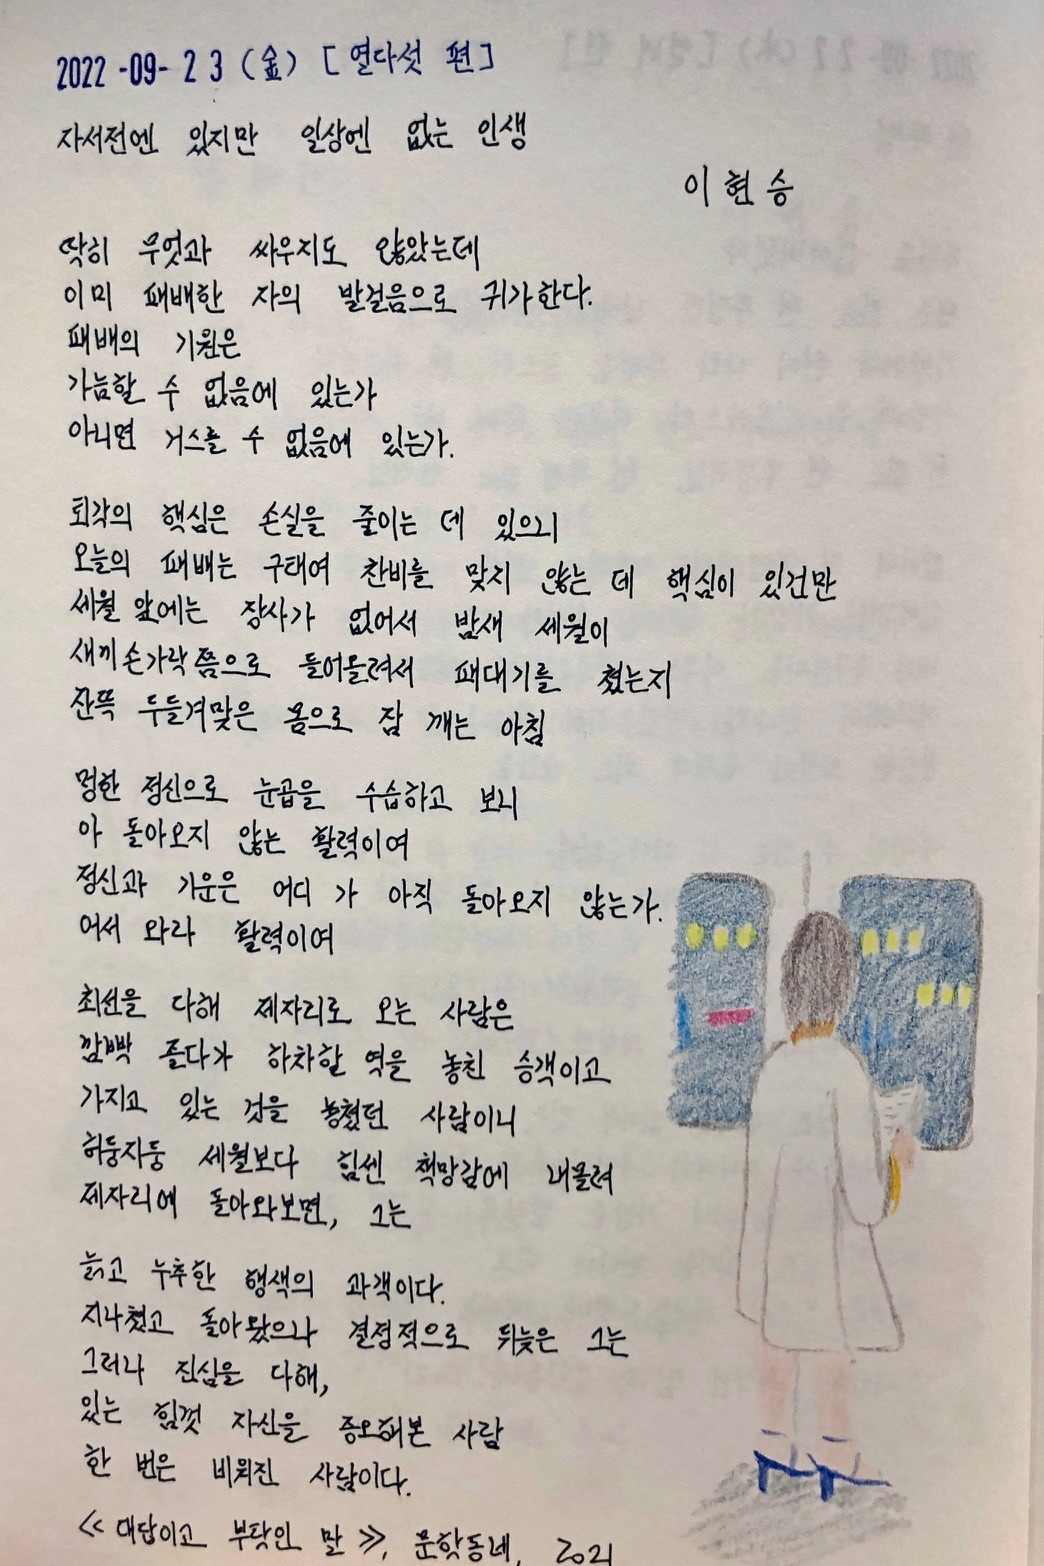 2022-09-23 (金) [열다섯 편]
자서전엔 있지만 일상엔 없는 인생
이현승
딱히 무엇과 싸우지도 않았는데
이미 패배한 자의 발걸음으로 귀가한다.
패배의 기원은
가늠할 수 없음에 있는가
아니면 거스를 수 없음에 있는가.
퇴각의 핵심은 손실을 줄이는 데 있으니
오늘의 패배는 구태여 찬비를 맞지 않는 데 핵심이 있건만
세월 앞에는 장사가 없어서 밤새 세월이
새끼손가락쯤으로 들어올려서 패대기를 쳤는지
잔뜩 두들겨맞은 몸으로 잠 깨는 아침
멍한 정신으로 눈곱을 수습하고 보니
아 돌아오지 않는 활력이여
정신과 기운은 어디 가 아직 돌아오지 않는가.
어서 와라 활력이여
최선을 다해 제자리로 오는 사람은
깜빡 졸다가 하차할 역을 놓친 승객이고
가지고 있는 것을 놓쳤던 사람이니
허둥지둥 세월보다 힘센 책망감에 내몰려
제자리에 돌아와보면, 그는
늙고 누추한 행색의 과객이다.
지나쳤고 돌아왔으나 결정적으로 뒤늦은 그는
그러나 진심을 다해,
있는 힘껏 자신을 증오해본 사람
한 번은 비워진 사람이다.
≪대답이고 부탁인 말≫, 문학동네, 2021